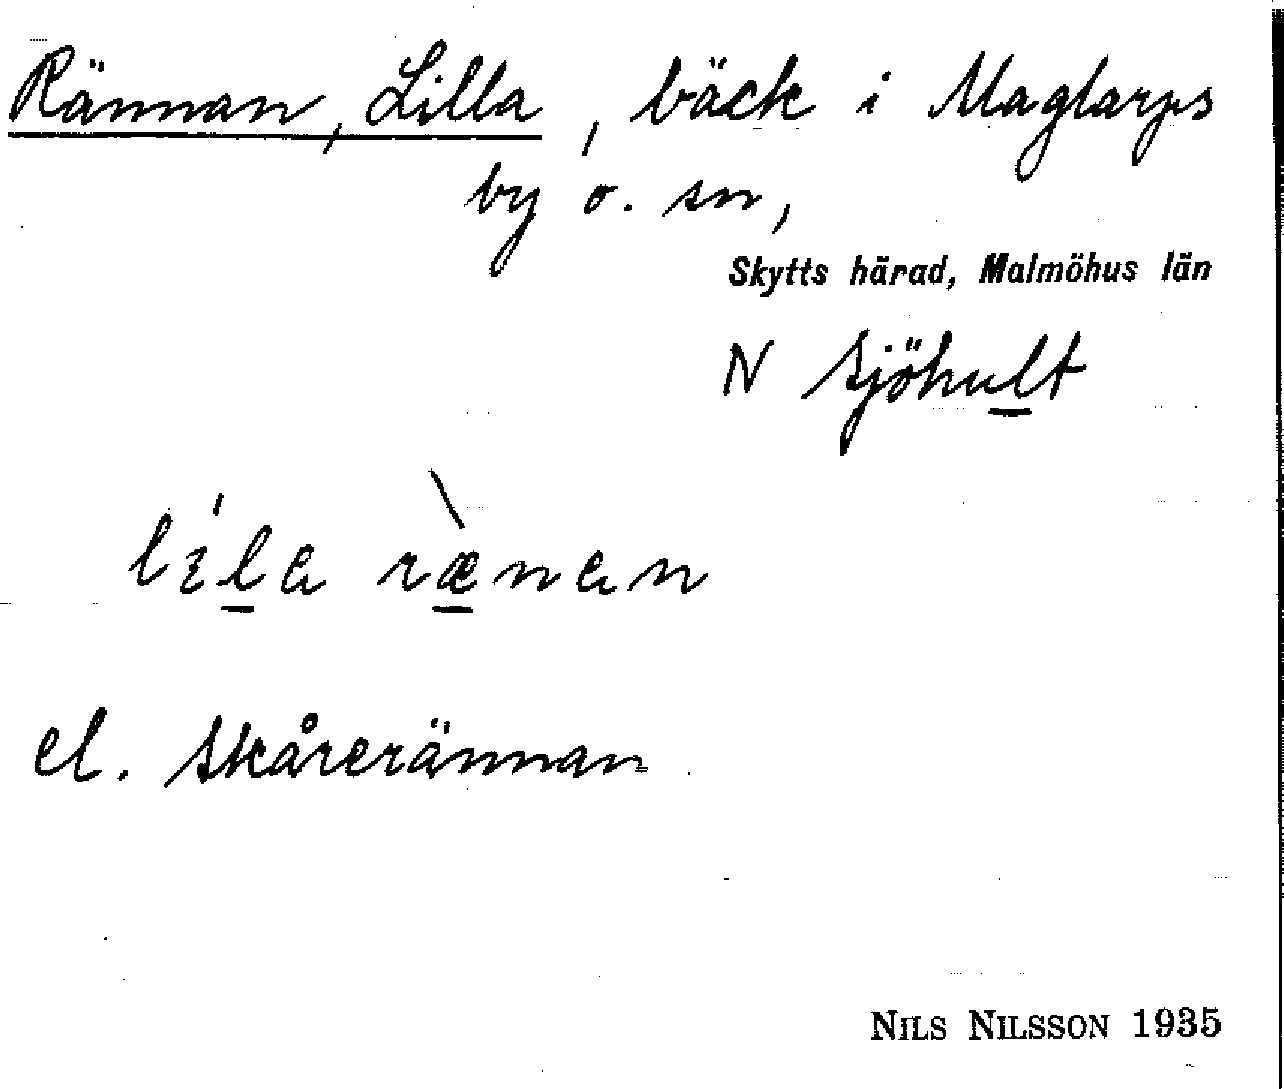 Rännan, Lilla, bäck i Maglarps
by o. sn,
Skytts härad, Malmöhus län
N Sjöhult
lila rænan
el. Skårerännan
NILS NILSSON 1935